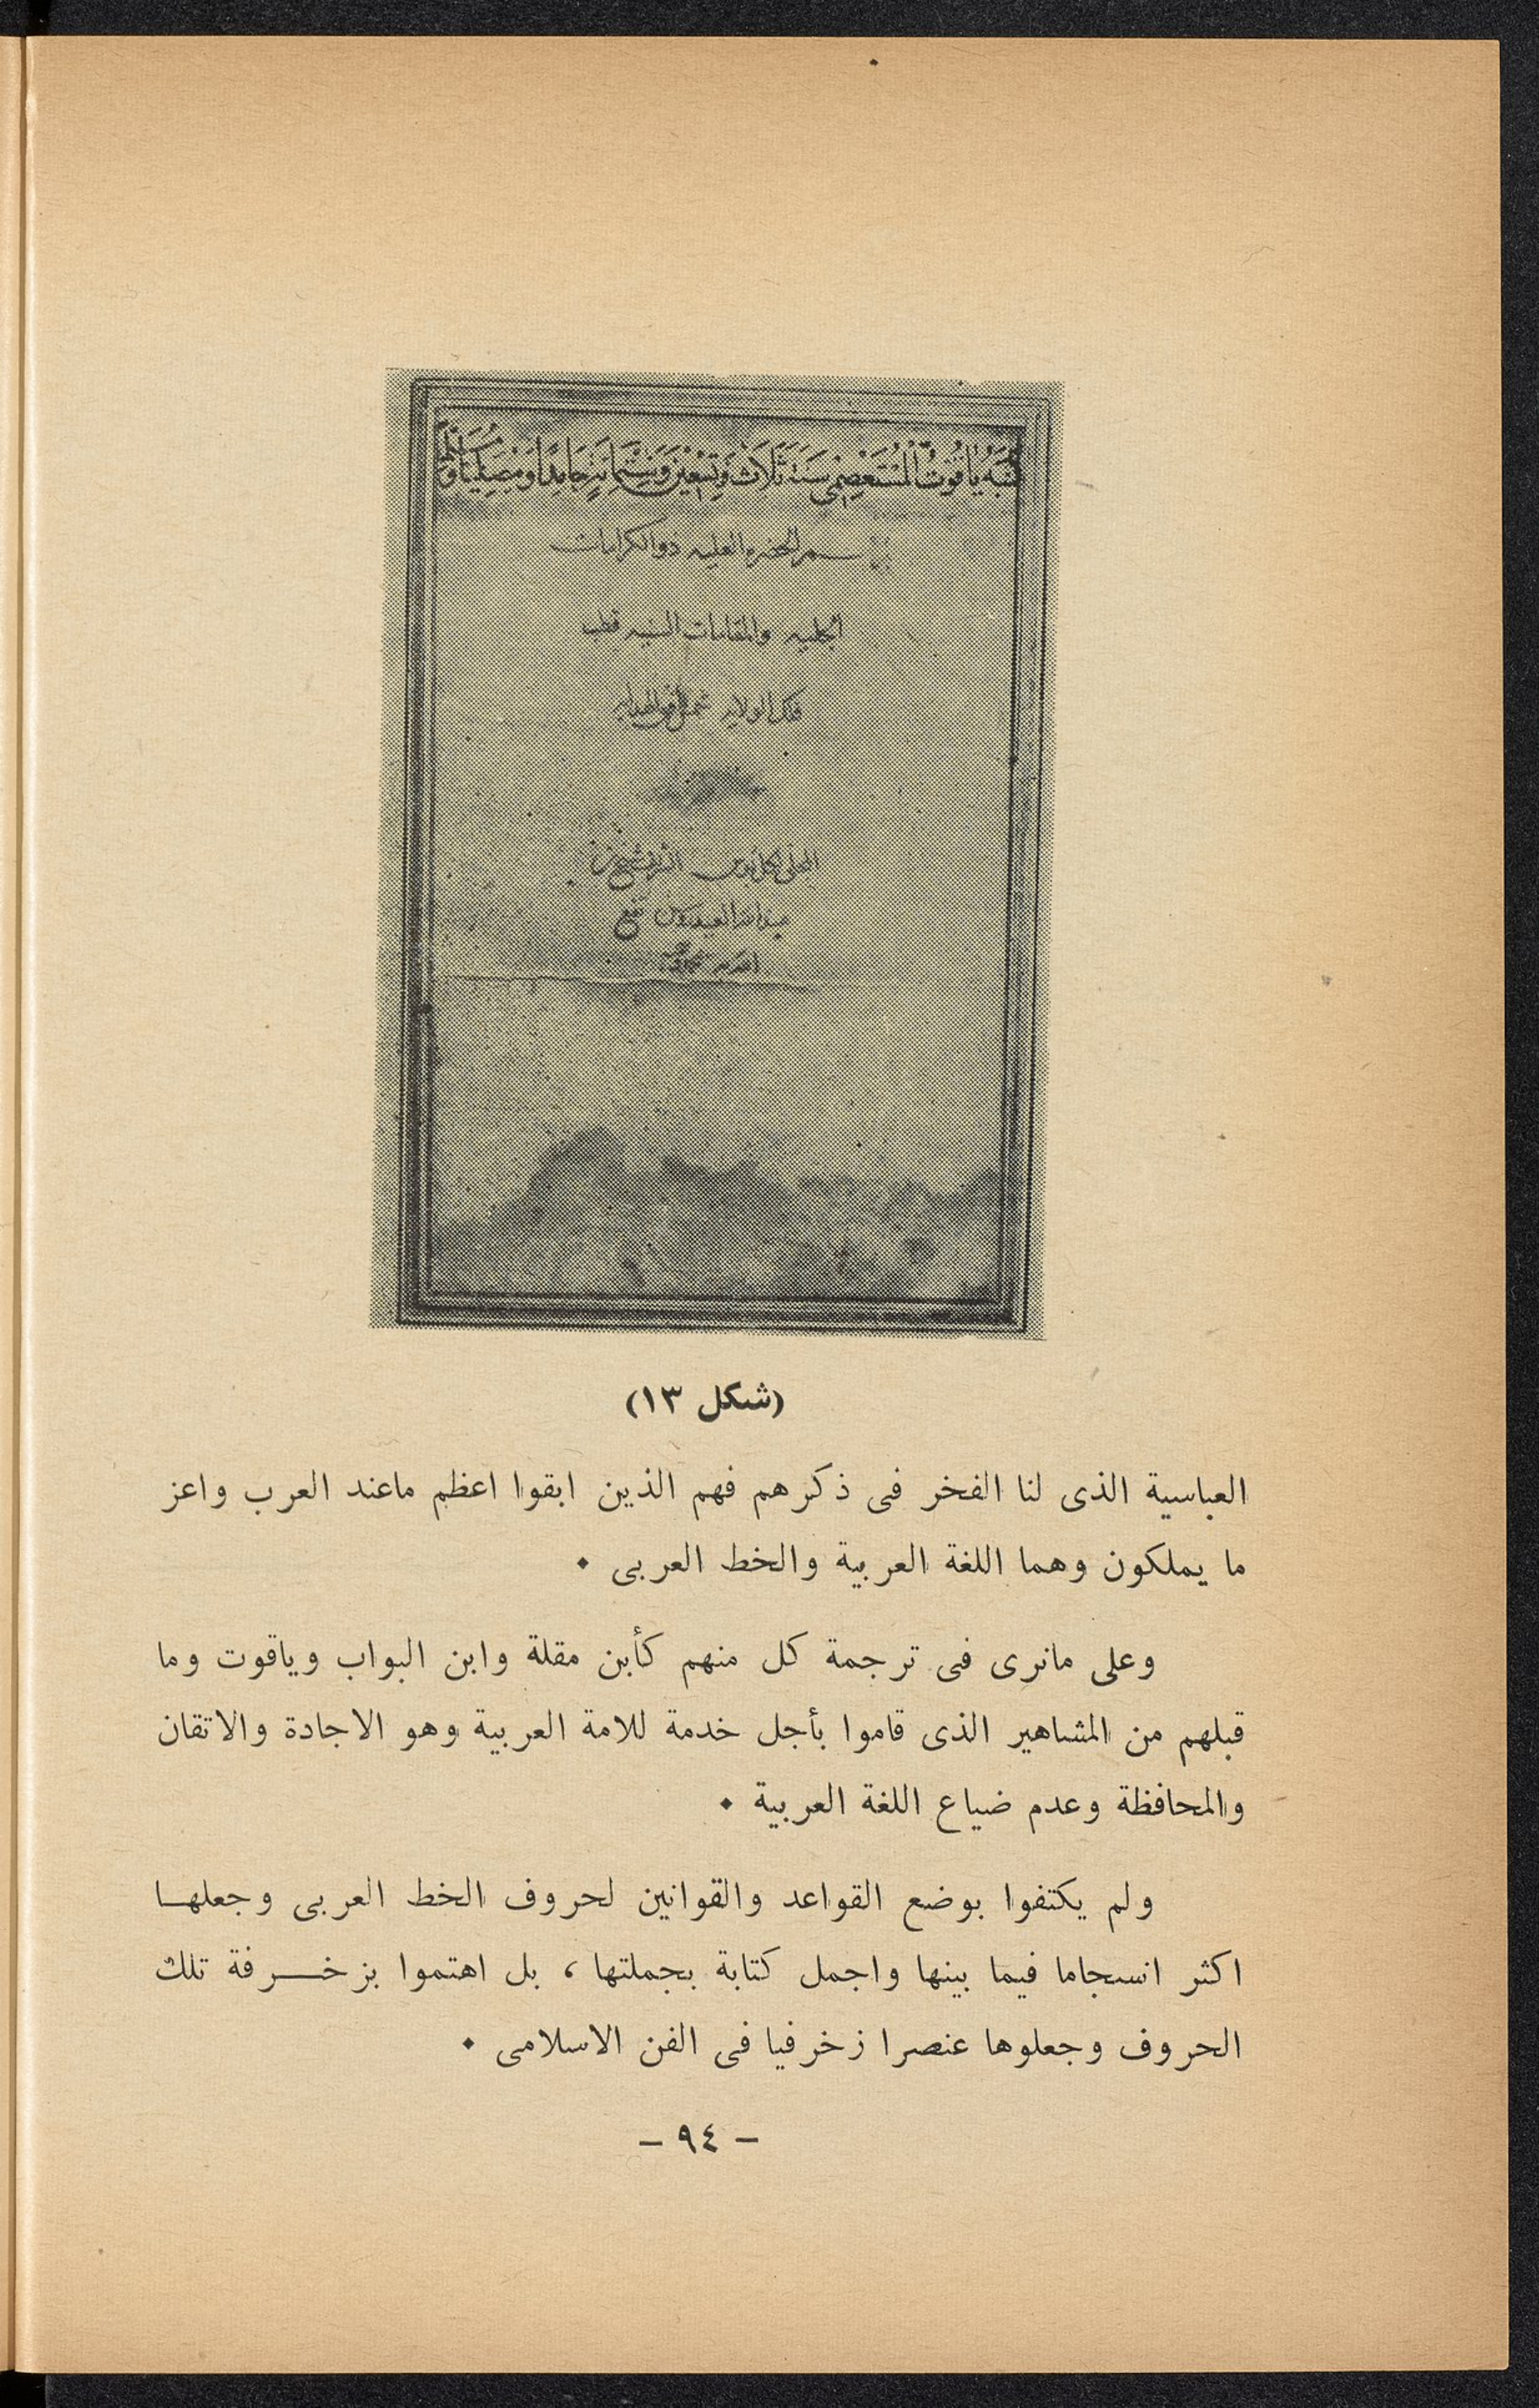 كتبه ياقوت المستعصمي سنة ثلاث وتسعين وستمائة حامدا ومصليا
الجليه والمقامات السنيه قطب
فلك الولايه شمس افق الهدايه
(شكل ١٣)
العباسية الذى لنا الفخر فى ذكرهم فهم الذين ابقوا اعظم ماعند العرب واعز
ما يملكون وهما اللغة العربية والخط العربى ٠
وعلى مانرى فى ترجمة كل منهم كأبن مقلة وابن البواب وياقوت وما
قبلهم من المشاهير الذى قاموا بأجل خدمة للامة العربية وهو الاجادة والاتقان
والمحافظة وعدم ضياع اللغة العربية ٠
ولم يكتفوا بوضع القواعد والقوانين لحروف الخط العربى وجعلهـا
اكثر انسجاما فيما بينها واجمل كتابة بجملتها ، بل اهتموا بزخـــرفة تلك
الحروف وجعلوها عنصرا زخرفيا فى الفن الاسلامى ٠
– ٩٤ –